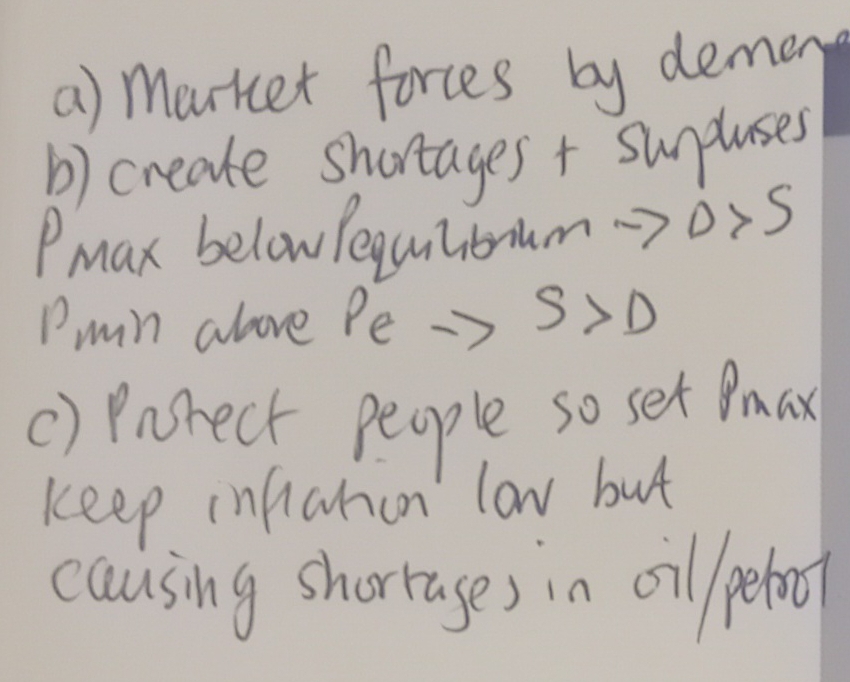 a) Market forces by deman
b) create shortages + surpluses
Pmax below Pequilibrium -> D > S
Pmin above Pe -> S > D
c) Protect people so set Pmax
keep inflation low but
causing shortages in oil/petrol